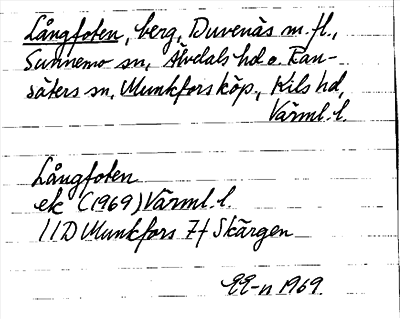 Långfoten, berg, Duvenäs m. fl.,
Sunnemo sn, Älvdals hd o. Ran-
säters sn, Munkfors köp., Kils hd,
Värml. l.
Långfoten
ek C (1969) Värml. l.
11D Munkfors 7f Skärgen
-n 1969.